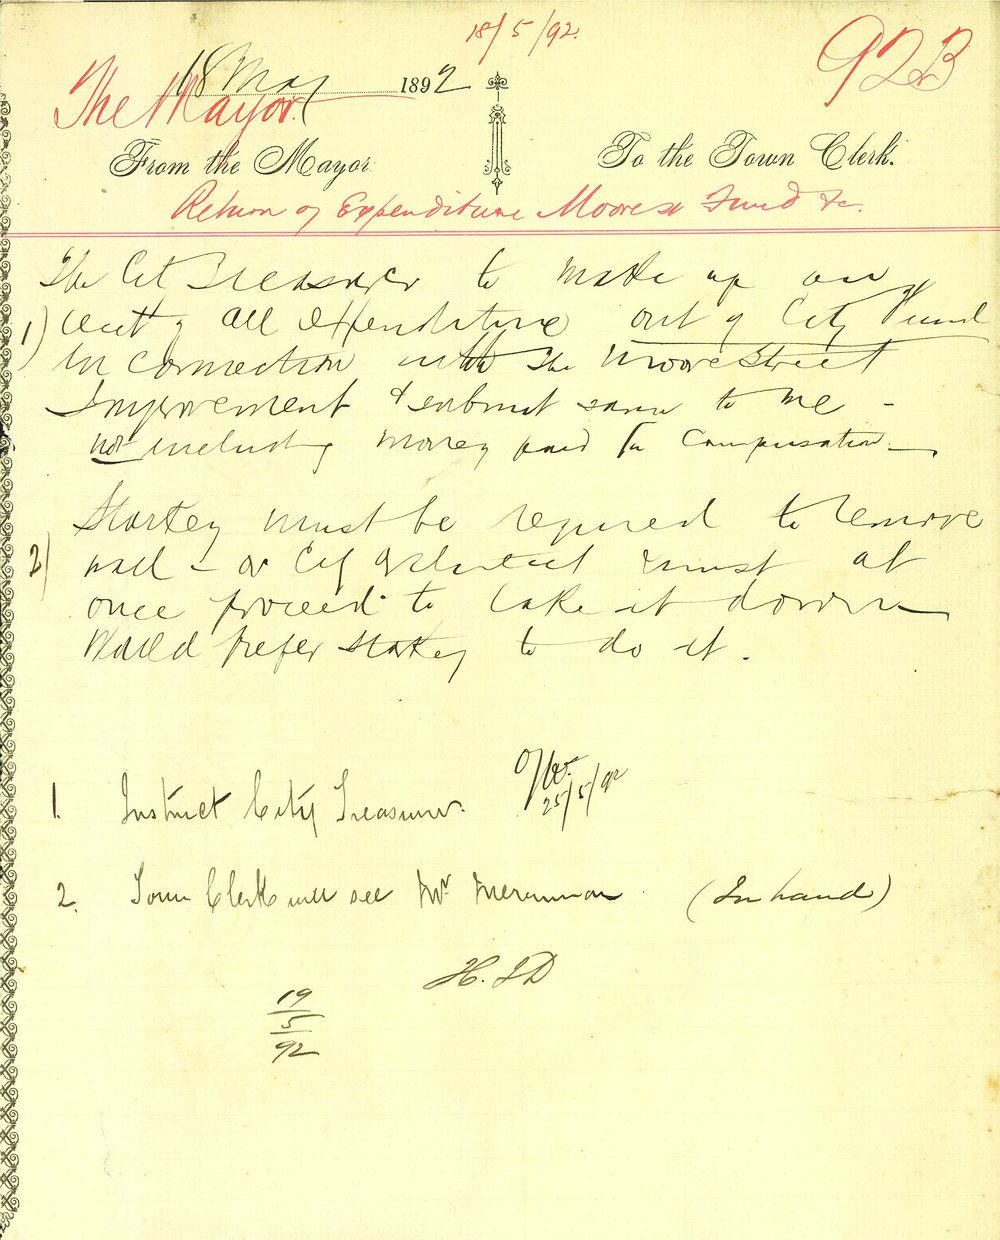 18/5/92.
92B
18 May 1892
The Mayor.
From the Mayor. To the Town Clerk.
Return of Expenditure Moore St Fund &c.
The Cit Treasurer to make up an
1) acct of all expenditure out of City Fund
in connection with the Moore Street
Improvement & submit same to me -
not including money paid for compensation.
Starkey must be required to remove
2) wall - or City must at
once proceed to take it down
Would prefer Starkey to do it.
1. Instruct City Treasurer.
25/5/92
2. Town Clerk will see Mr Merriman (In hand)
H.J.D
19
5
92